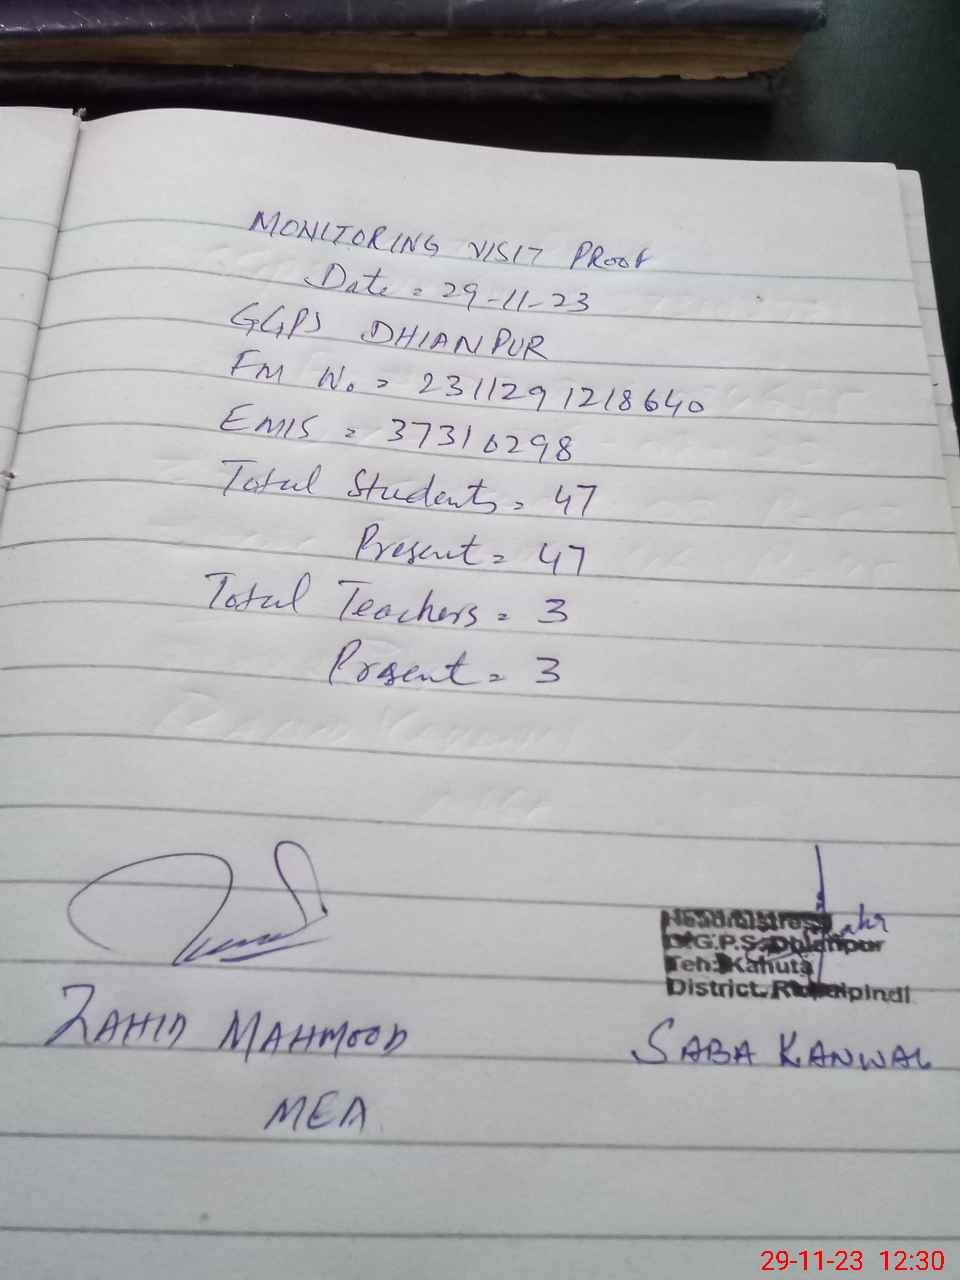 MONITORING VISIT PROOF
Date = 29-11-23
GGPS DHIANPUR
FM No = 2311291218640
EMIS = 37310298
Total Students = 47
Present = 47
Total Teachers = 3
Present = 3
Headmistress
G.G.P.S. Dhianpur
Teh: Kahuta
District. Rawalpindi
ZAHID MAHMOOD
SABA KANWAL
MEA
29-11-23 12:30